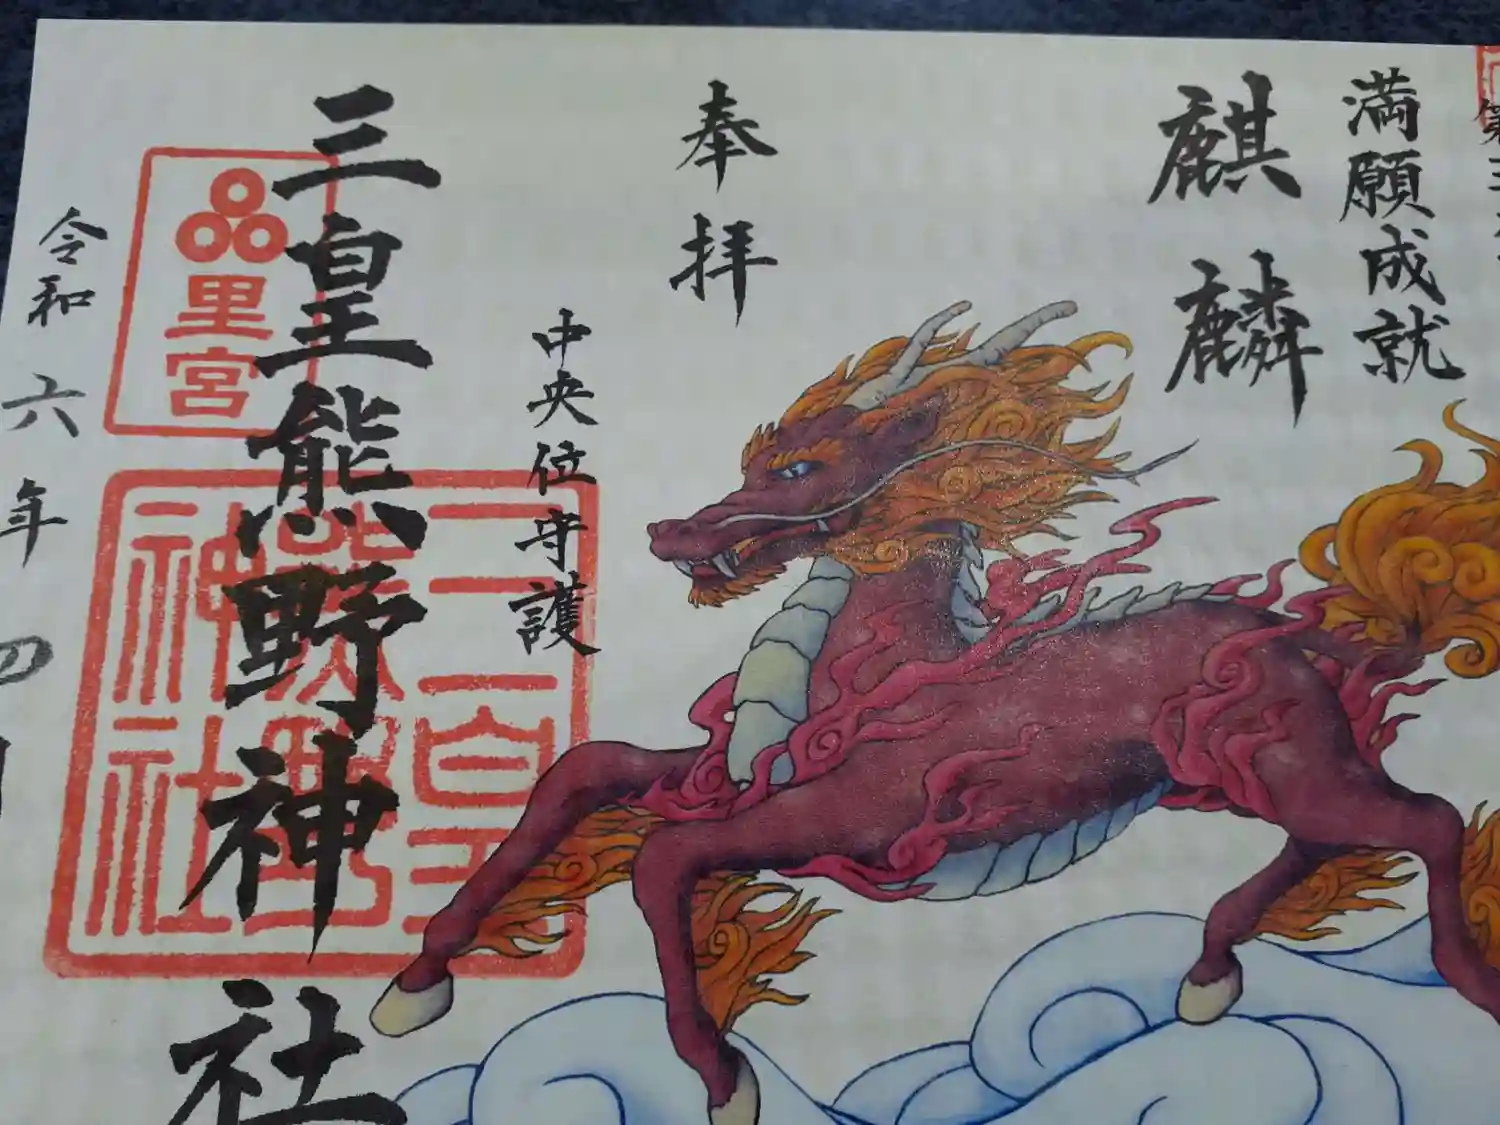 満願成就
麒麟
奉拝
中央位守護
三皇熊野神社
里宮
三皇熊野神社
令和六年四